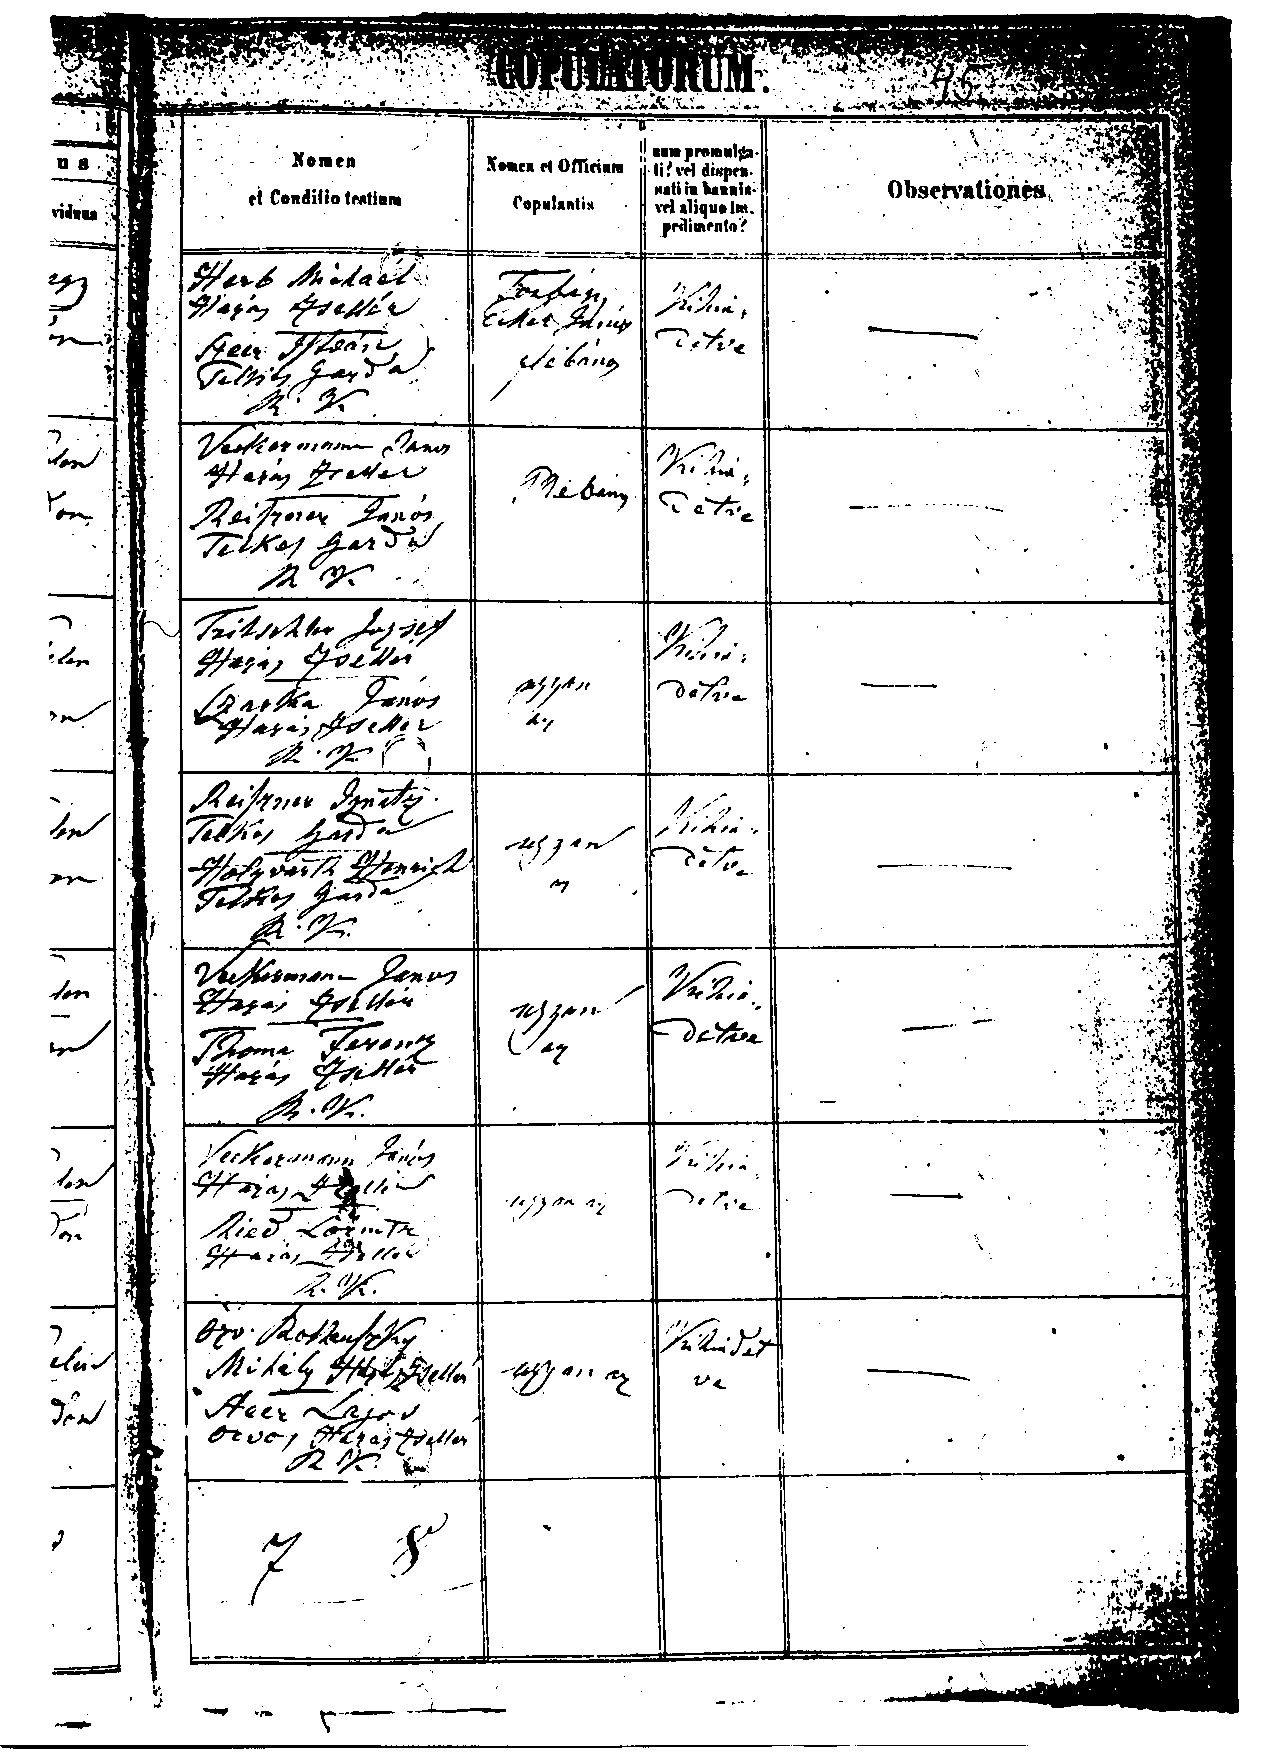 COPULATORUM.
45
us
viduus
Nomen
et Conditio testium
Nomen et Officium
Copulantis
num promulga-
ti? vel dispen-
sati in bannis
vel aliquo im-
pedimento?
Observationes
Herb Michael
Házas Zsellér
István
Telkes Gazda
R. K.
János
Plébános
Kihir-
detve
Veckermann János
Házas Zsellér
Reiszner János
Telkes Gazda
R. K.
Plébános
Kihir-
detve
Tritschler József
Házas Zsellér
Szarka János
Házas Zsellér
R. K.
ugyan
az
Kihir-
detve
Reiszner Ignátz
Telkes Gazda
Holzvarth Henrich
Telkes Gazda
R. K.
ugyan
az
Kihir-
detve
Veckermann János
Házas Zsellér
Thoma Ferencz
Házas Zsellér
R. K.
ugyan
az
Kihir-
detve
Veckermann János
Házas Zsellér
Ried Lőrintz
Házas Zsellér
R. K.
ugyan az
Kihir-
detve
özv.
Mihály Házas Zsellér
Lajos
orvos Házas Zsellér
R. K.
ugyan az
Kihirdet
ve
7 8